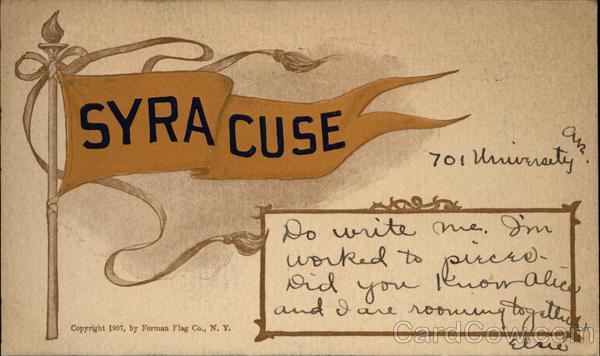 SYRACUSE
701 University Av.
Do write me. I'm
worked to pieces.
Did you know Alice
and I are rooming together
Elsie
Copyright 1907, by Forman Flag Co., N. Y.
CardCow.com